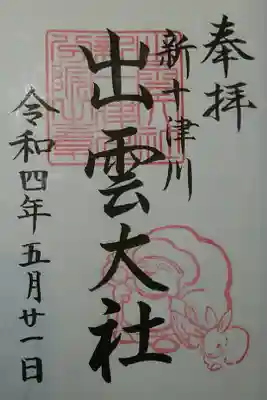 奉拝
新十津川
出雲大社
令和四年五月廿一日